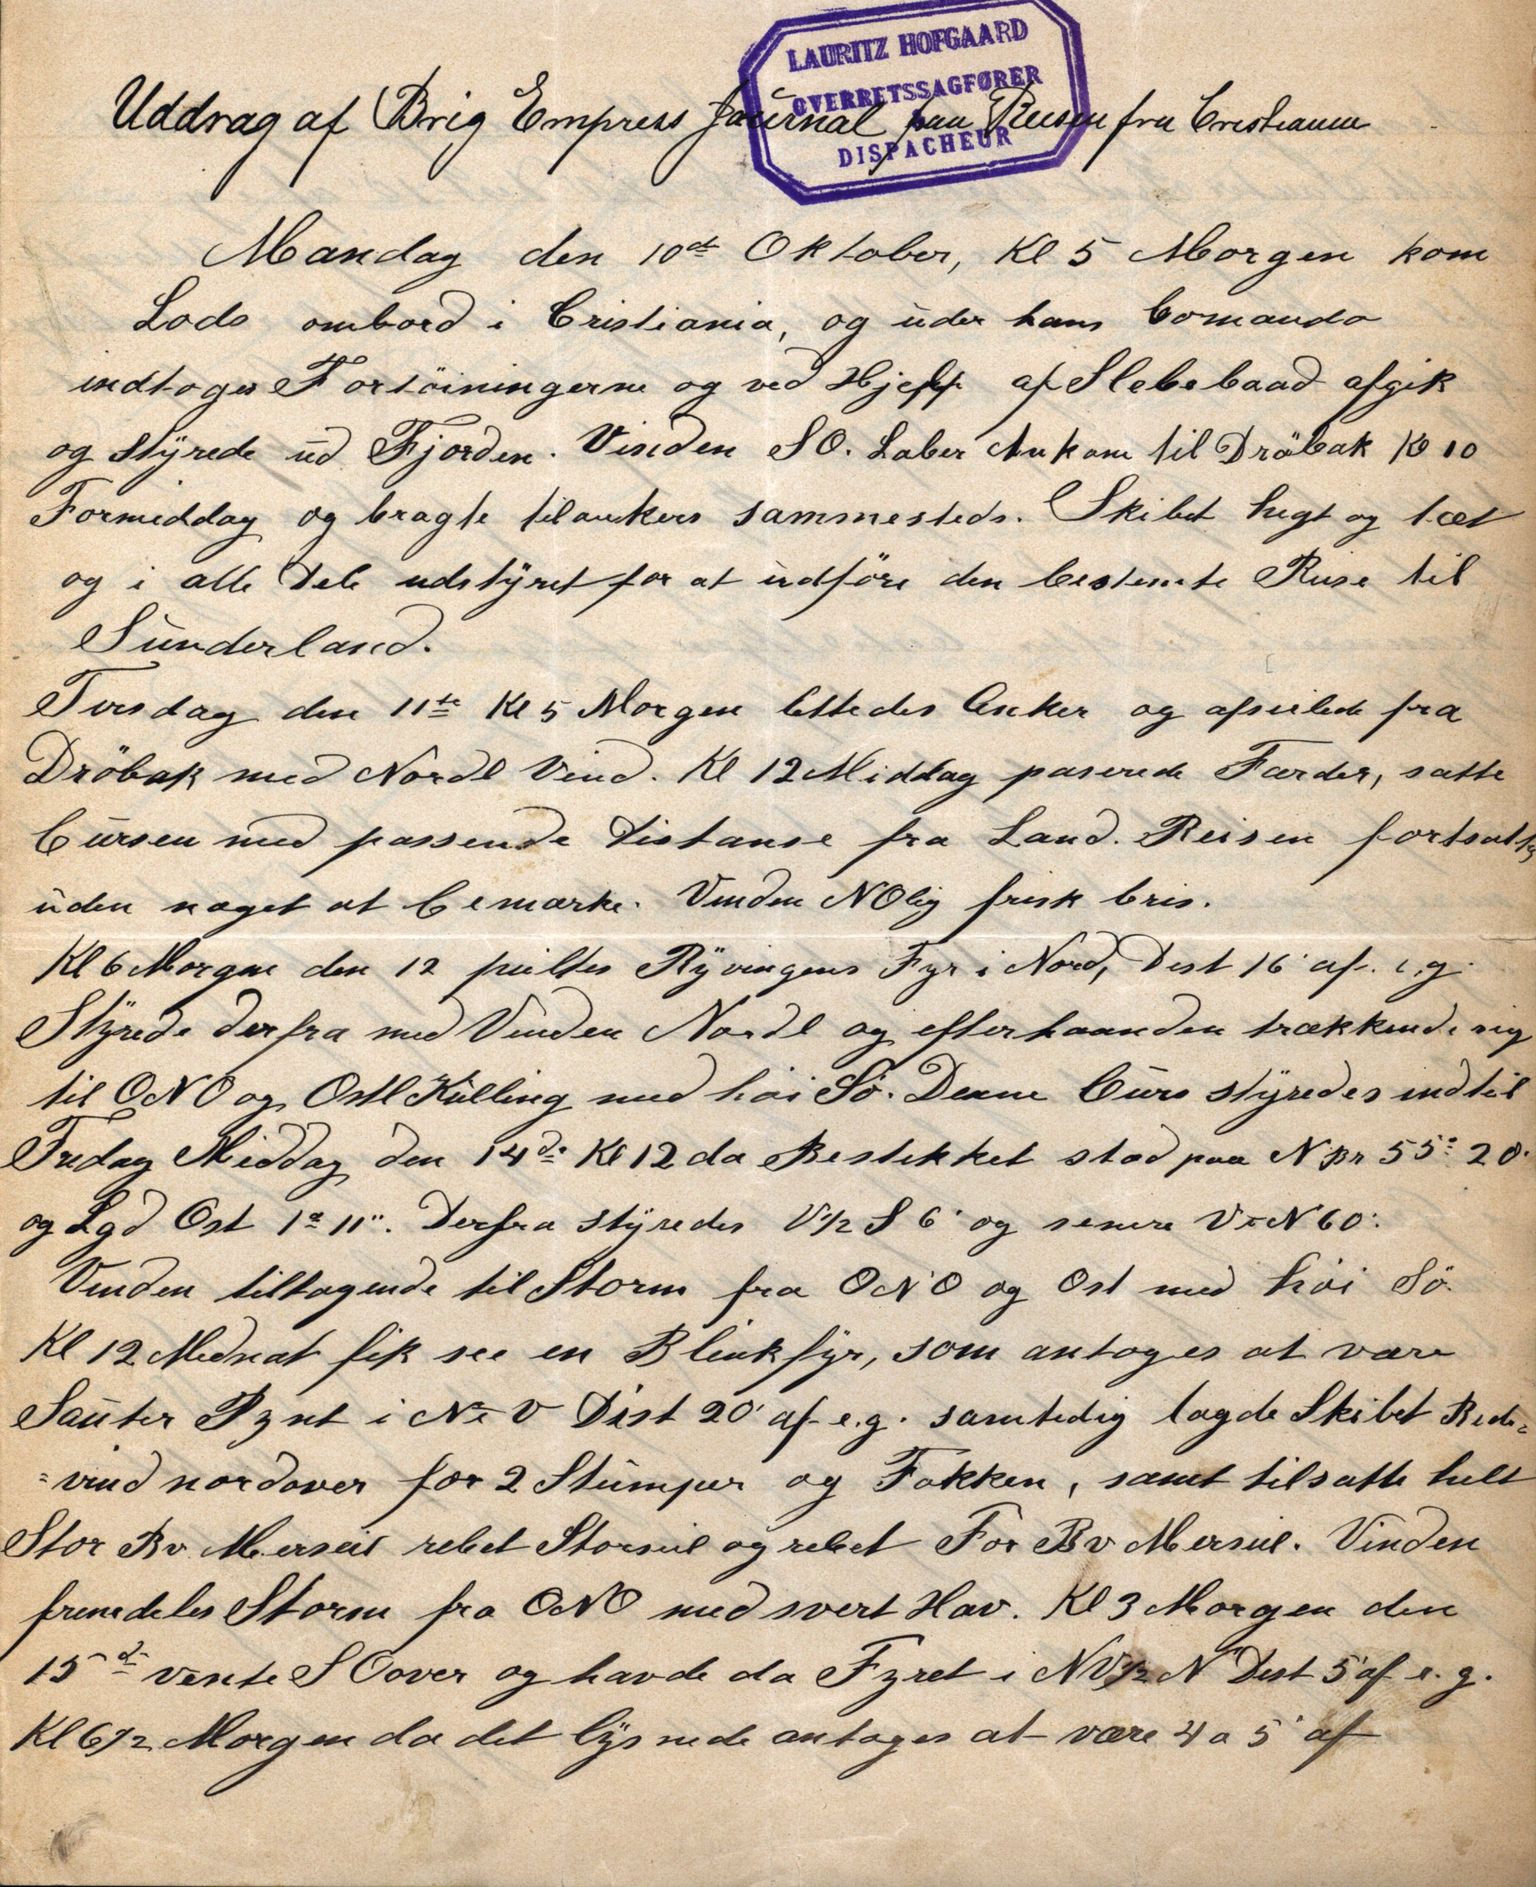 LAURITZ HOFGAARD
OVERRETSSAGFØRER
DISPACHEUR
Uddrag af Brig Empress Journal paa Reisen fra Cristiania
Mandag den 10de Oktober, Kl 5 Morgen kom
Lods ombord i Cristiania, og uder hans Comando
indtoges Fortöiningerne og ved Hjelp af Slebebaad afgik
og styrede ud Fjorden. Vinden SO. Laber Ankom til Dröbak Kl 10
Formiddag og bragte tilankers sammesteds. Skibet hegt og tæt
og i alle Dele udstyret for at udföre den bestemte Reise til
Sunderland.
Tirsdag den 11te Kl 5 Morgen lettedes Anker og afseilede fra
Dröbak med Nordl Vind. Kl 12 Middag paserede Færder, satte
Cursen med passende Distanse fra Land. Reisen fortsattes
uden noget at bemærke. Vinden NOlig frisk bris.
Kl 6 Morgen den 12 peiltes Ryvingens Fyr i Nord, Dist 16' af. e.g.
Styrede derfra med Vinden Nordl og efterhaanden trækkende sig
til ONO og Ostl Kulling med höi Sö. Denne Curs styredes indtil
Fredag Middag den 14de Kl 12 da Bestikket stod paa N Br 55° 20'
og Lgd Ost 1° 11". Derfra styredes V½ S 6' og senere VtN 60'.
Vinden tiltagende til Storm fra ONO og Ost med höi Sö.
Kl 12 Midnat fik see en Blinkfyr, som antoges at være
Sauter Pynt i NtV Dist 20' af e.g. samtidig lagde Skibet Bide=
=vind nordover for 2 Stumper og Fokken, samt tilsatte helt
Stor Bv Merseil rebet Storseil og rebet For Bv Merseil. Vinden
fremdeles Storm fra ONO med svert Hav. Kl 3 Morgen den
15de vente SOover og havde da Fyret i NV½ N Dist 5' af e.g.
Kl 6½ Morgen da det lysnede antages at være 4 a 5' af